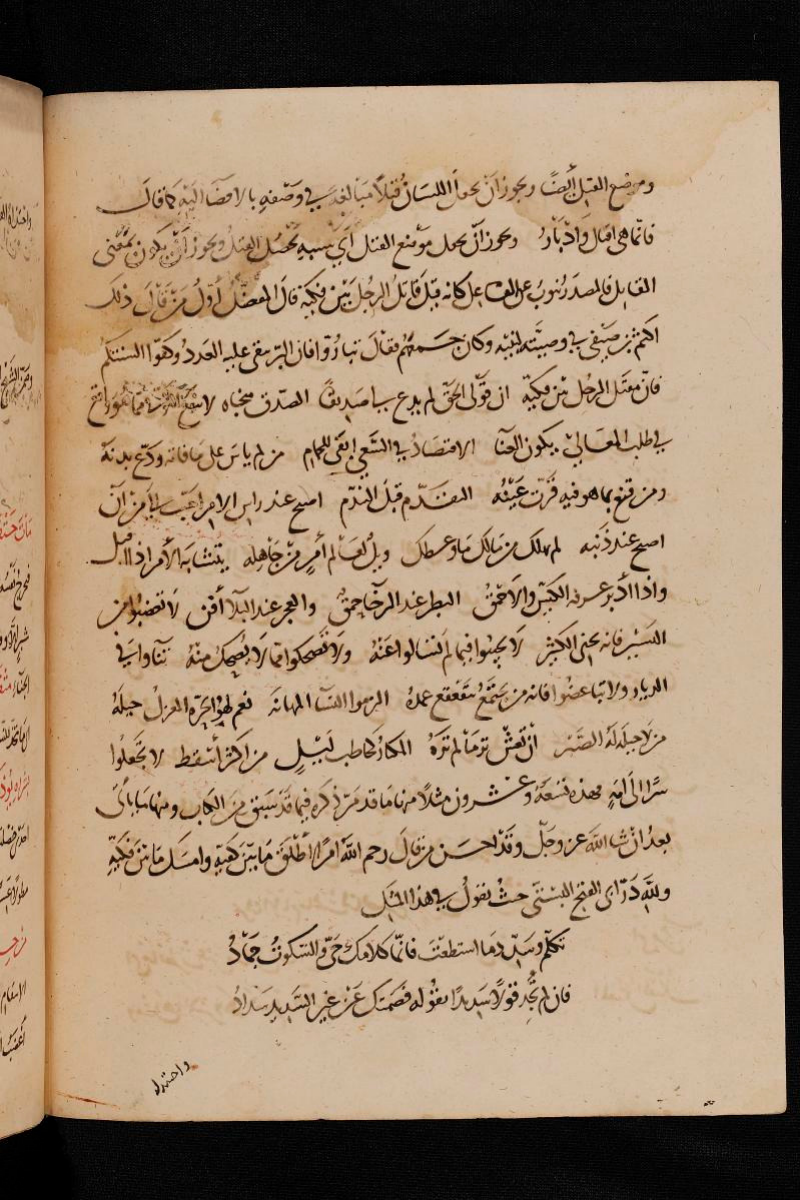 وموضع القتل أيضًا ويجوز أن يجعل اللسان قتلا مبالغة في وصفه بالافضا اليه كما قال
فانما هي اقبال وادبار ويجوز أن يجعل موضع القتل أي بسببه يحصل القتل ويجوز أن يكون بمعنى
القاتل فالمصدر ينوب عن الفاعل كانه قيل قاتل الرجل بين فكيه قال المفضل أول من قال ذلك
اكثم بن صيفي في وصيته لبنيه وكان جمعهم فقال تبارّوا فان البر يبقى عليه العدد وكفوا السنتكم
فان مقتل الرجل بين فكيه ان قول الحق لم يدع لي صديقا الصدق منجاه لا ينفع التوقي مما هو واقع
في طلب المعالي يكون العنا الاقتصاد في السعي ابقى للجمام من لم ياس على ما فاته ودع بدنه
ومن قنع بما هو فيه قرت عينه التقدم قبل التندم اصبح عند راس الامر احب الي من أن
اصبح عند ذنبه لم يهلك من مالك ما وعظك ويل لعالم أمر من جاهله يتشابه الأمر اذا اقبل
واذا أدبر عرفه الكيس والاحمق البطر عند الرخا حمق والعجز عند البلا أفن لا تغضبوا من
اليسير فانه يجني الكثير لا تجيبوا فيما لم تسالوا عنه ولا تضحكوا مما لا يضحك منه تناوا في
الديار ولا تباغضوا فانه من يجتمع يتقعقع عمده الزموا النسا المهانه نعم لهو الحرة المغزل حيلة
من لا حيلة له الصبر ان تعش تر ما لم تره المكثار كحاطب ليل من اكثر أسقط لا تجعلوا
سرا الى امة فهذه تسعة وعشرون مثلا منها ما قد مر ذكره فيما قد سبق من الكتاب ومنها ما ياتى
بعد ان شا الله عز وجل وقد احسن من قال رحم الله امرا أطلق ما بين كفيه وامسك ما بين فكيه
ولله در ابى الفتح البستي حيث يقول في هذا المثل
تكلم وسدد ما استطعت فانما كلامك حي والسكوت جماد
فان لم تجد قولا سديدا تقوله فصمتك عن غير السديد سداد